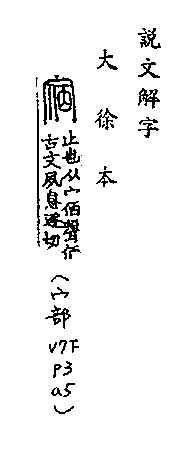 說文解字
大徐本
宿
止也从宀佰聲佰
古文夙息逐切
(宀部 V7F P3 a5)